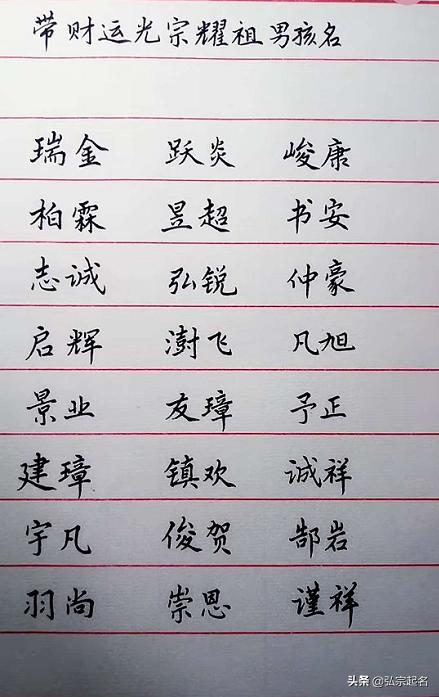 带财运光宗耀祖男孩名
瑞金 跃炎 峻康
柏霖 昱超 书安
志诚 弘锐 仲豪
启辉 澍飞 凡旭
景业 友璋 予正
建璋 镇欢 诚祥
宇凡 俊贺 郜岩
羽尚 崇恩 谨祥
头条 @弘宗起名